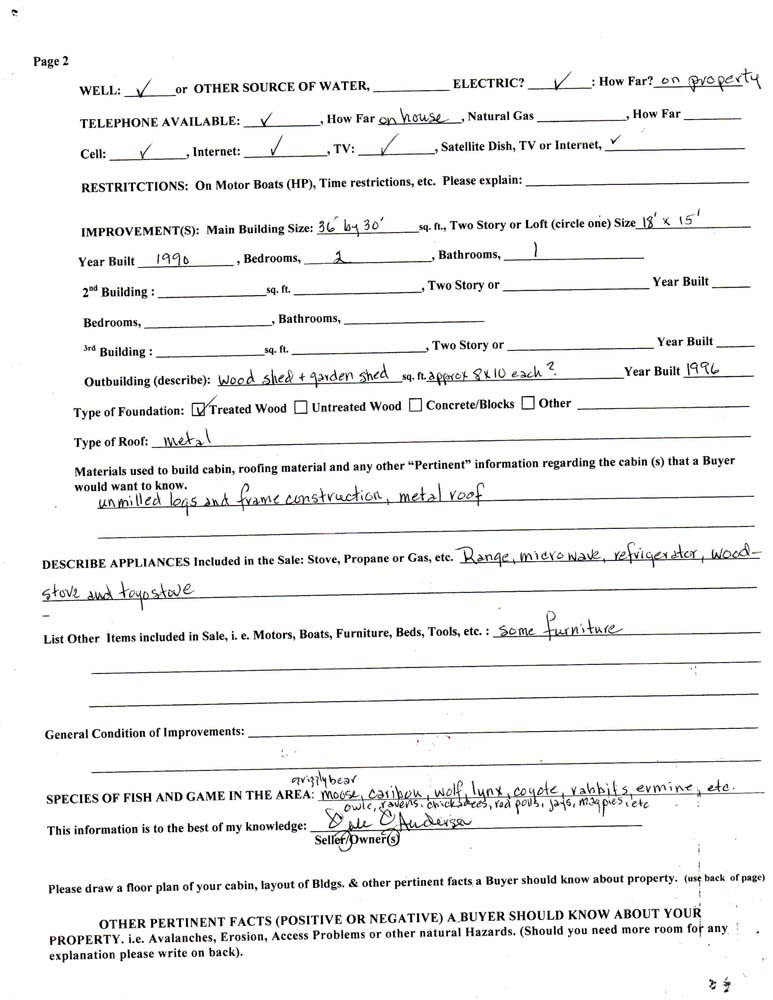 Page 2
WELL: ✓ or OTHER SOURCE OF WATER, ____ ELECTRIC? ✓ : How Far? on property
TELEPHONE AVAILABLE: ✓ , How Far on house , Natural Gas ____ , How Far ____
Cell: ✓ , Internet: ✓ , TV: ✓ , Satellite Dish, TV or Internet, ✓
RESTRITCTIONS: On Motor Boats (HP), Time restrictions, etc. Please explain: ____
IMPROVEMENT(S): Main Building Size: 36' by 30' sq. ft., Two Story or Loft (circle one) Size 18' x 15'
Year Built 1996 , Bedrooms, 2 , Bathrooms, 1
2nd Building : ____ sq. ft. ____ , Two Story or ____ Year Built ____
Bedrooms, ____ , Bathrooms, ____
3rd Building : ____ sq. ft. ____ , Two Story or ____ Year Built ____
Outbuilding (describe): wood shed + garden shed sq. ft. approx 8x10 each ? Year Built 1996
Type of Foundation: ☑ Treated Wood ☐ Untreated Wood ☐ Concrete/Blocks ☐ Other ____
Type of Roof: metal
Materials used to build cabin, roofing material and any other “Pertinent” information regarding the cabin (s) that a Buyer
would want to know.
unmilled logs and frame construction, metal roof
DESCRIBE APPLIANCES Included in the Sale: Stove, Propane or Gas, etc. Range, microwave, refrigerator, wood-
stove and toyostove
List Other Items included in Sale, i. e. Motors, Boats, Furniture, Beds, Tools, etc. : some furniture
General Condition of Improvements: ____
grizzly bear
SPECIES OF FISH AND GAME IN THE AREA: moose, caribou, wolf, lynx, coyote, rabbits, ermine, etc.
owls, ravens, chickadees, red polls, jays, magpies, etc
This information is to the best of my knowledge: Dale Anderson
Seller/Owner(s)
Please draw a floor plan of your cabin, layout of Bldgs. & other pertinent facts a Buyer should know about property. (use back of page)
OTHER PERTINENT FACTS (POSITIVE OR NEGATIVE) A BUYER SHOULD KNOW ABOUT YOUR
PROPERTY. i.e. Avalanches, Erosion, Access Problems or other natural Hazards. (Should you need more room for any
explanation please write on back).